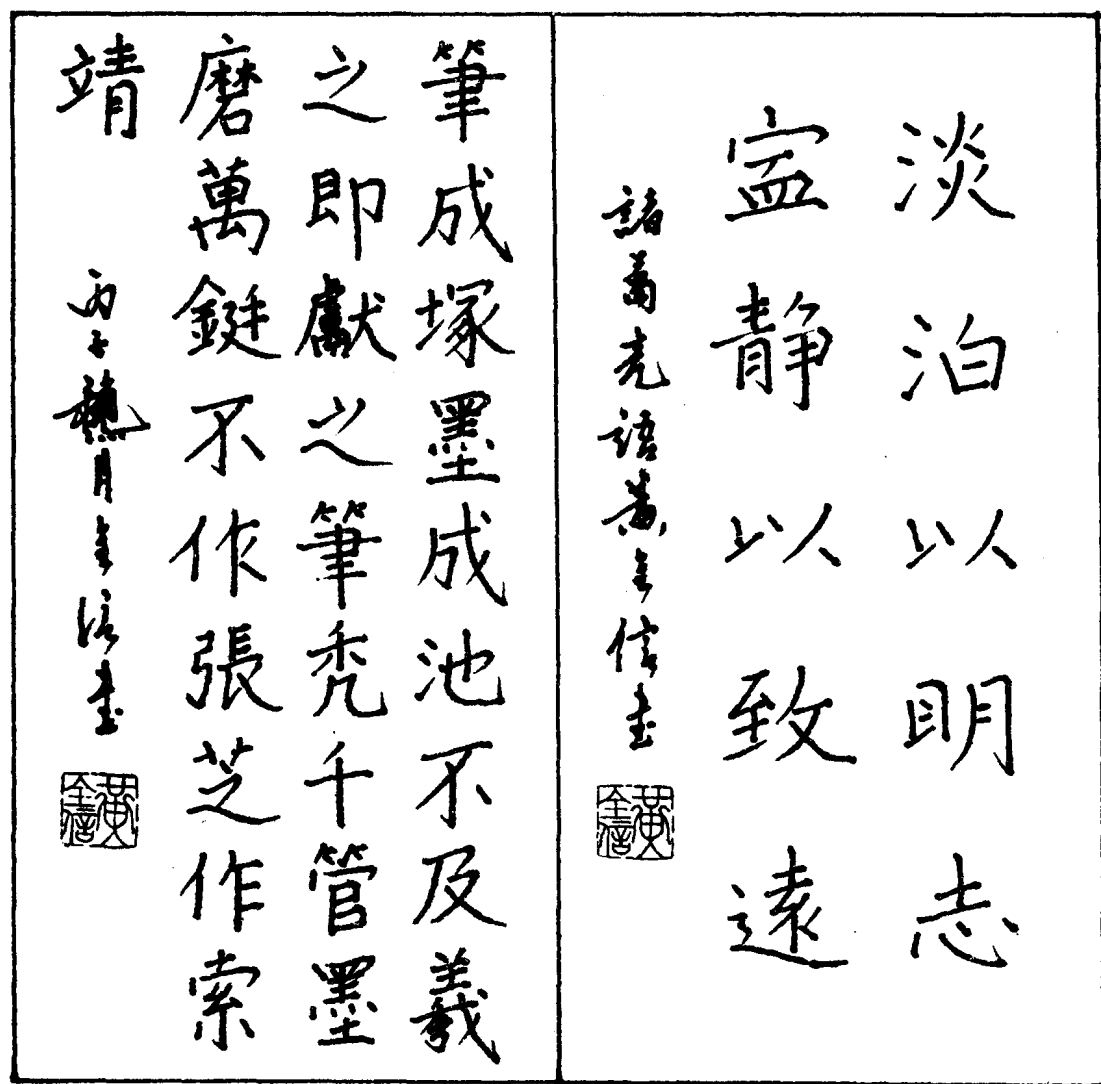 淡泊以明志
寍静以致遠
諸葛亮語黄全信書
黄全信
筆成塚墨成池不及羲
之即獻之筆秃千管墨
磨萬鋌不作張芝作索
靖
丙子龝月全信書
黄全信